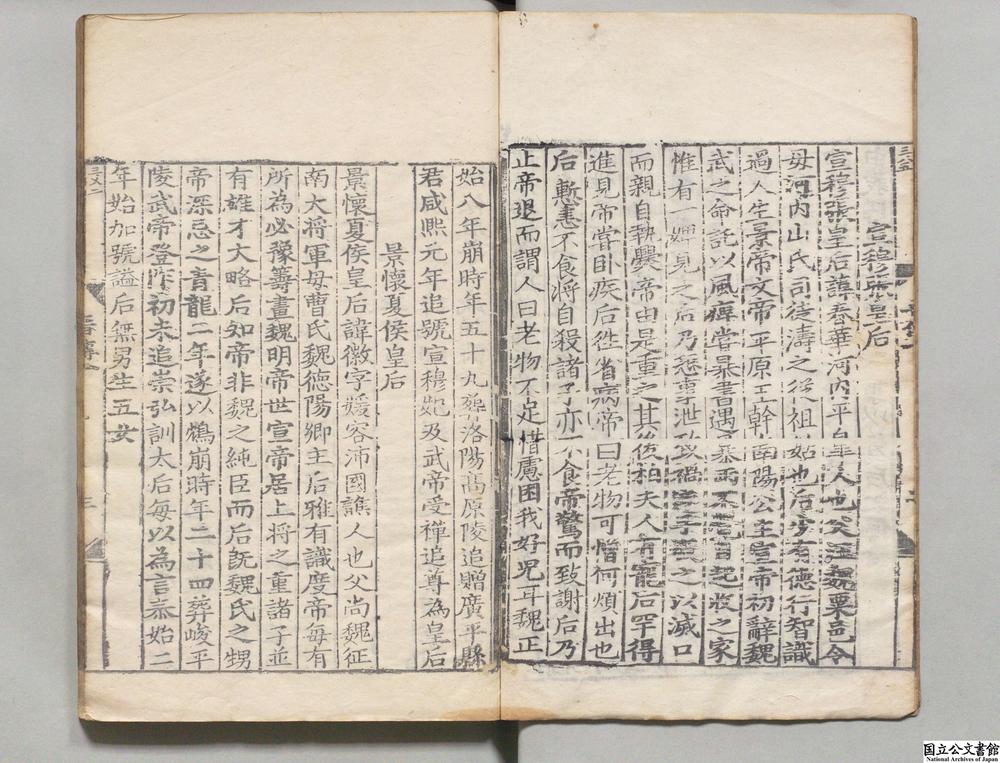 宣穆張皇后
宣穆張皇后諱春華河内平皐人也父汪魏粟邑令
母河内山氏司徒濤之從祖姑也后少有德行智識
過人生景帝文帝平原王幹南陽公主宣帝初辭魏
武之命託以風痺嘗暴書遇暴雨不覺自起收之家
惟有一婢見之后乃恐事泄致禍手殺之以滅口
而親自執爨帝由是重之其後柏夫人有寵后罕得
進見帝嘗卧疾后徃省病帝曰老物可憎何煩出也
后慙恚不食將自殺諸子亦不食帝驚而致謝后乃
止帝退而謂人曰老物不足惜慮困我好兒耳魏正
始八年崩時年五十九葬洛陽高原陵追贈廣平縣
君咸熙元年追號宣穆妃及武帝受禪追尊為皇后
景懷夏侯皇后
景懷夏侯皇后諱徽字媛容沛國譙人也父尚魏征
南大將軍母曹氏魏德陽鄉主后雅有識度帝每有
所為必豫籌畫魏明帝世宣帝居上將之重諸子並
有雄才大略后知帝非魏之純臣而后既魏氏之甥
帝深忌之青龍二年遂以鴆崩時年二十四葬峻平
陵武帝登阼初未追崇弘訓太后每以為言泰始二
年始加號謚后無男生五女
三
国立公文書館
National Archives of Japan